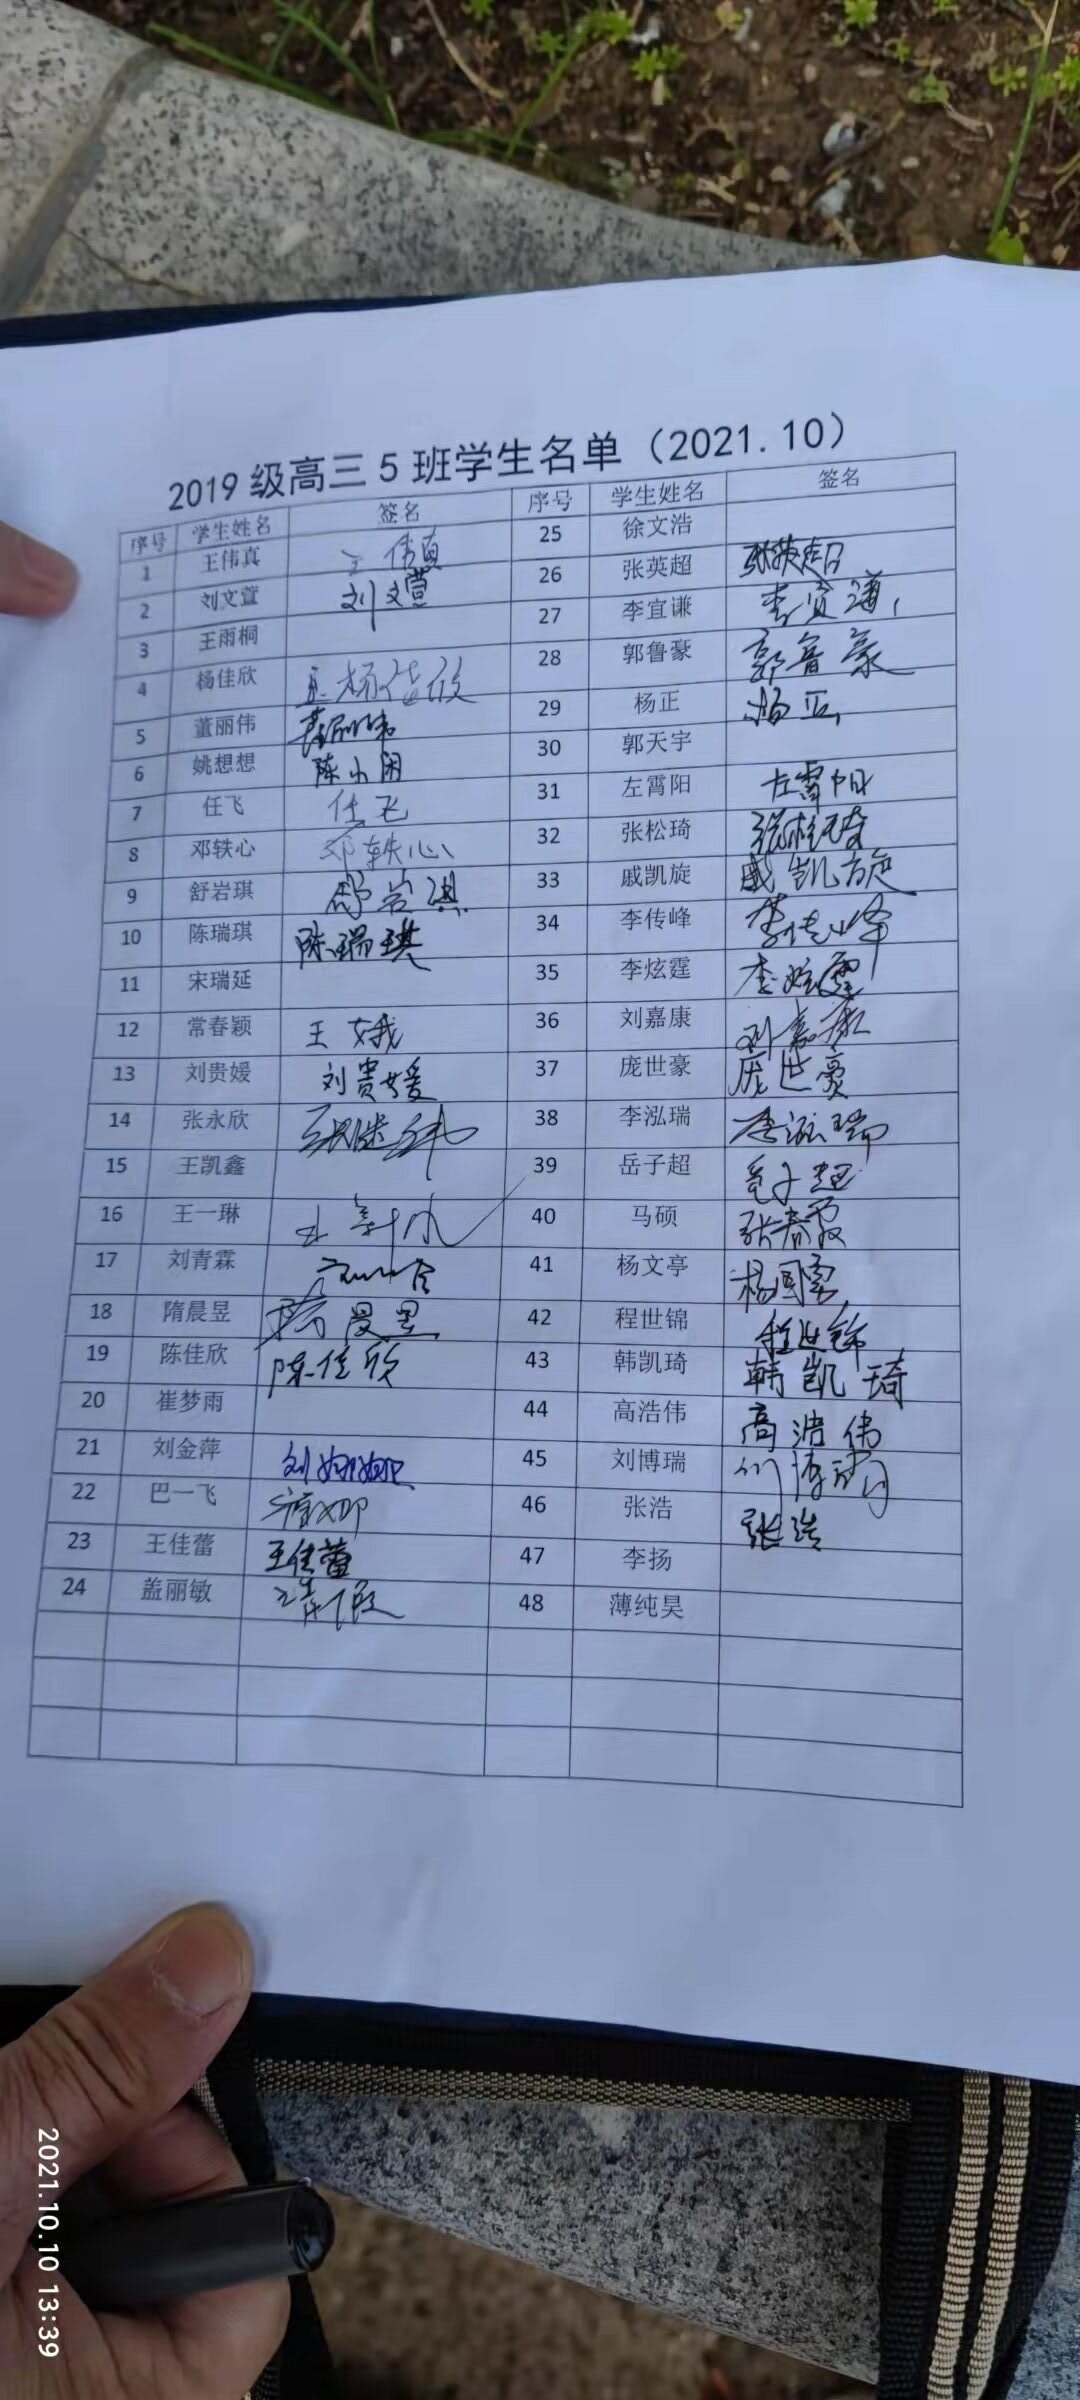 2019级高三5班学生名单（2021.10）
序号 学生姓名 签名 序号 学生姓名 签名
1 王伟真 王伟真 25 徐文浩
2 刘文萱 刘文萱 26 张英超 张英超
3 王雨桐 27 李宜谦
4 杨佳欣 杨佳欣 28 郭鲁豪 郭鲁豪
5 董丽伟 董丽伟 29 杨正 杨正
6 姚想想 陈小闲 30 郭天宇
7 任飞 任飞 31 左霄阳 左霄阳
8 邓轶心 邓轶心 32 张松琦 张松琦
9 舒岩琪 舒岩琪 33 戚凯旋 戚凯旋
10 陈瑞琪 陈瑞琪 34 李传峰 李传峰
11 宋瑞延 35 李炫霆 李炫霆
12 常春颖 王娥 36 刘嘉康 刘嘉康
13 刘贵媛 刘贵媛 37 庞世豪 庞世豪
14 张永欣 38 李泓瑞 李泓瑞
15 王凯鑫 39 岳子超 岳子超
16 王一琳 40 马硕 张春霞
17 刘青霖 41 杨文亭
18 隋晨昱 42 程世锦 程世锦
19 陈佳欣 陈佳欣 43 韩凯琦 韩凯琦
20 崔梦雨 44 高浩伟 高浩伟
21 刘金萍 45 刘博瑞 刘博瑞
22 巴一飞 46 张浩 张浩
23 王佳蕾 王佳蕾 47 李扬
24 盖丽敏 48 薄纯昊
2021.10.10 13:39